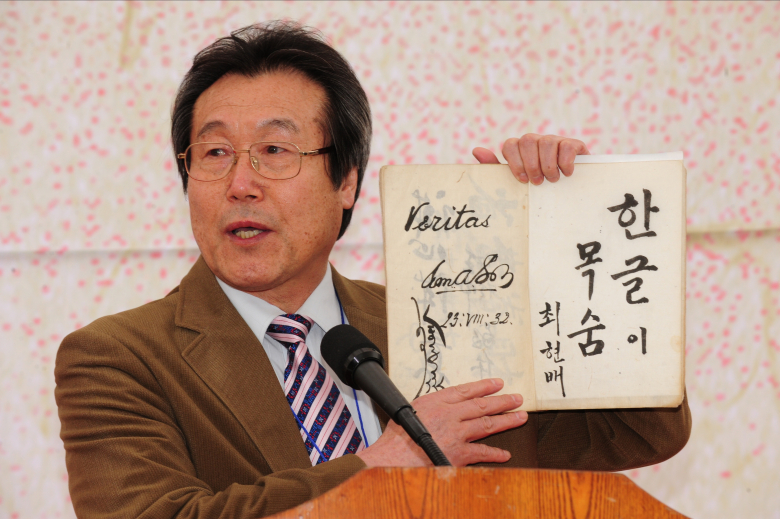 Veritas
23: VIII: 32.
한글이
목숨
최현배